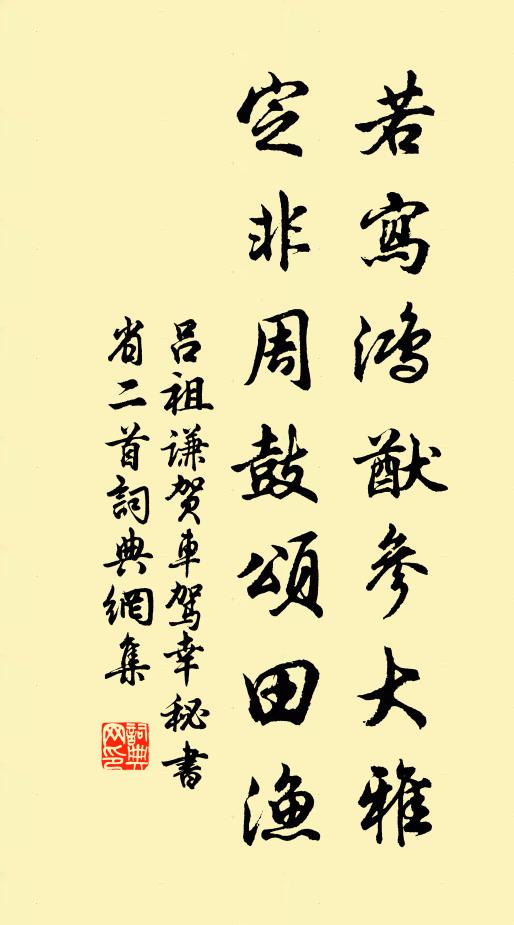 若寫鴻猷參大雅
定非周鼓頌田漁
吕祖謙賀車駕幸秘書
省二首詞典網集
詞典
网印